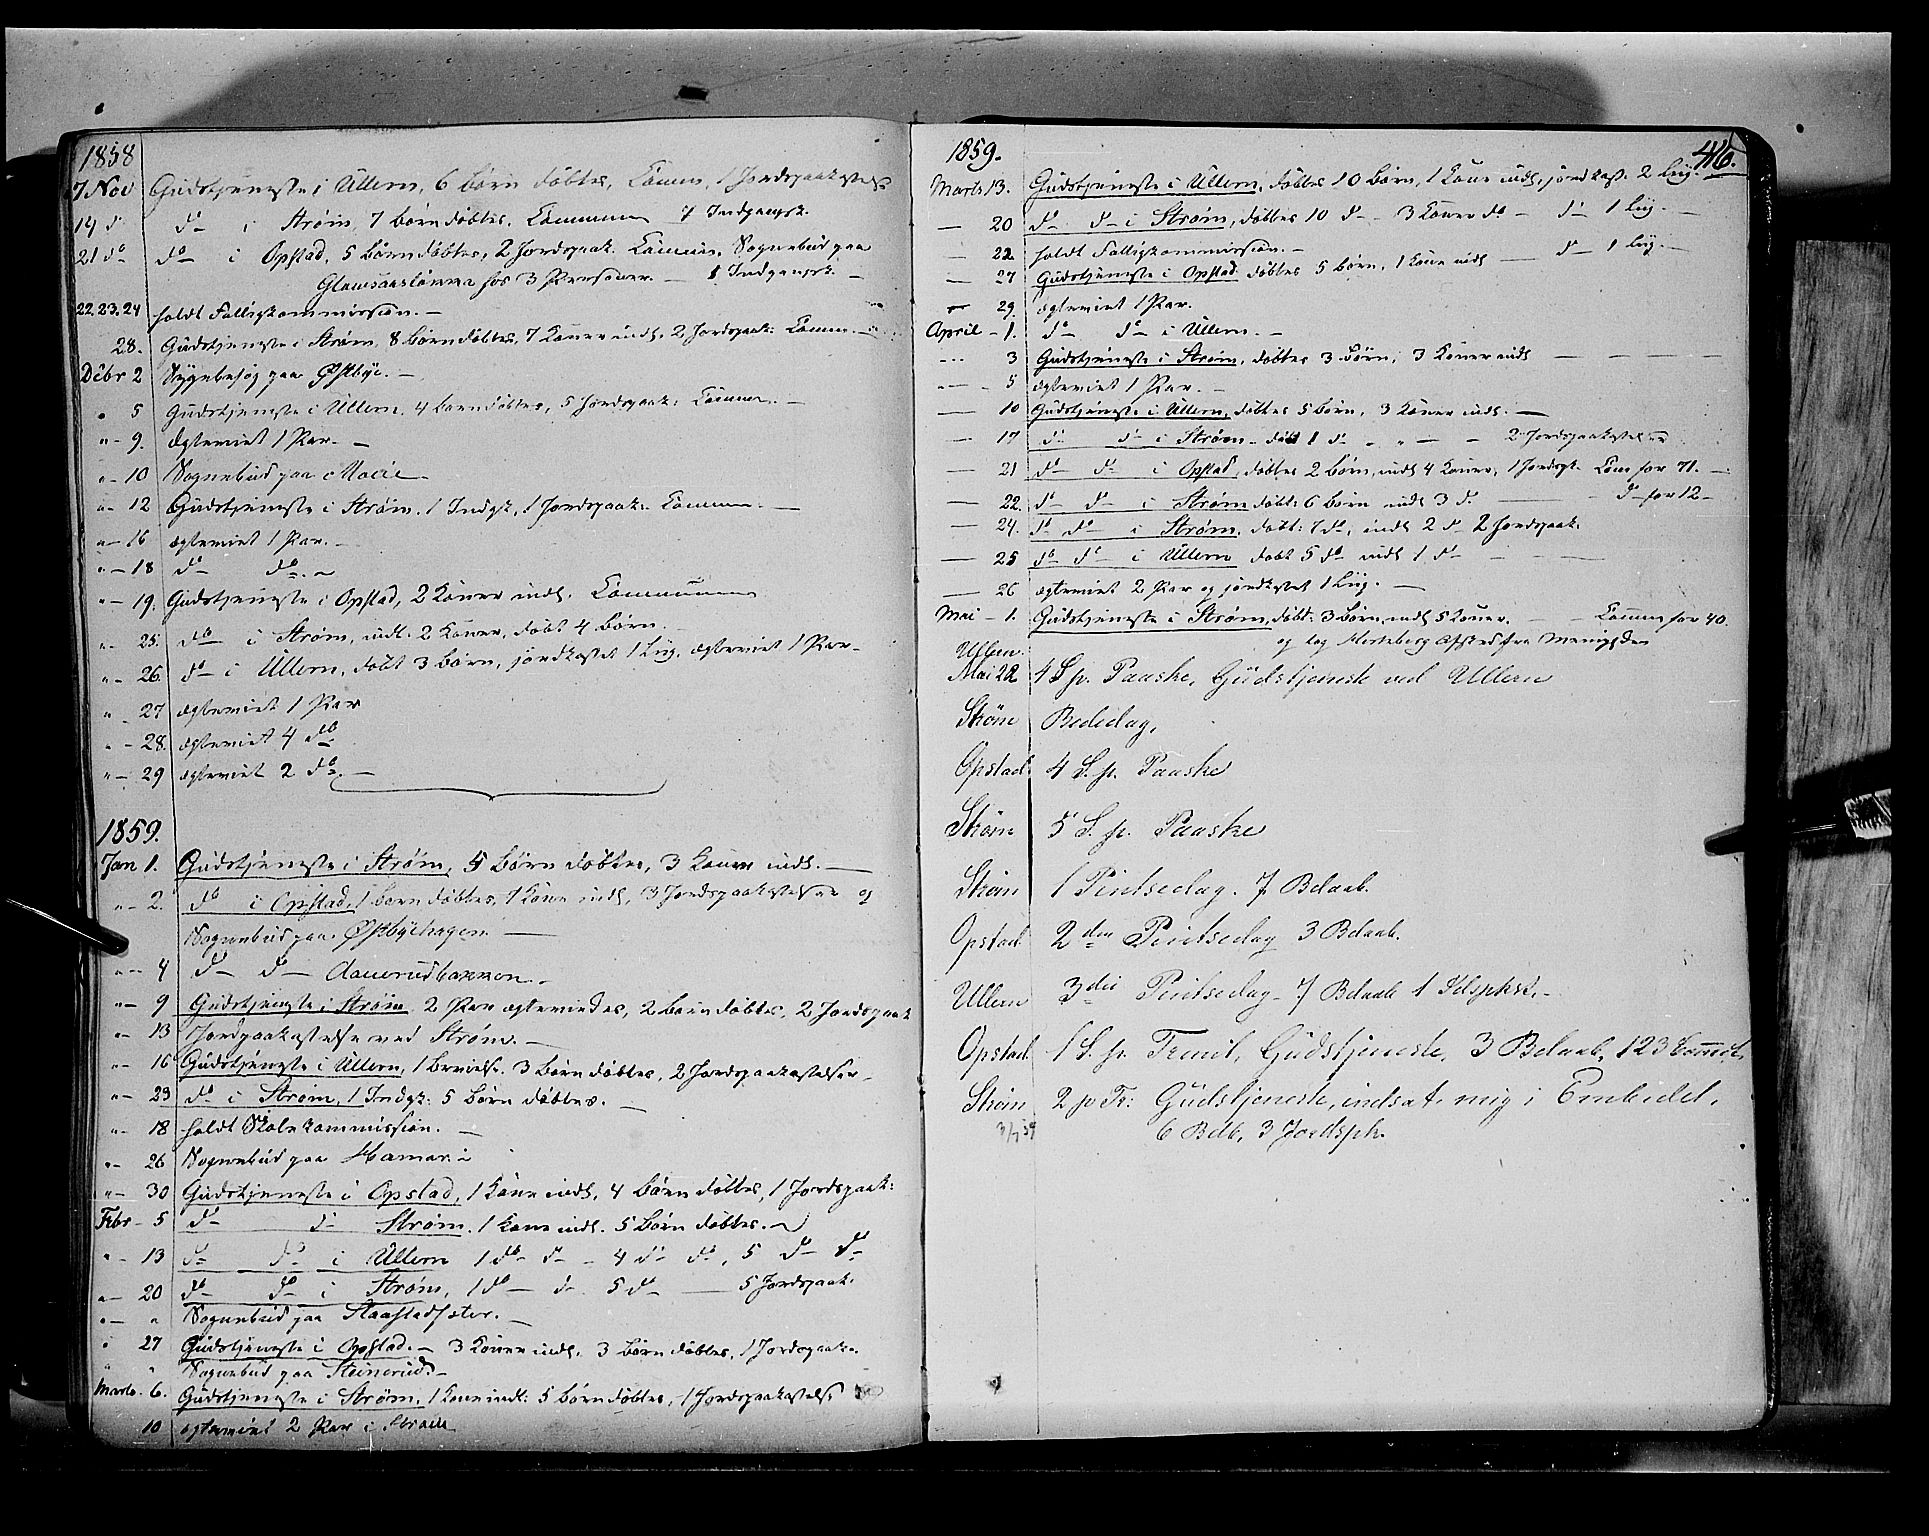 1858
7 Nov Gudstjeneste i Ullern, 6 børn døbtes, Commun, 1 Jordspaakastelse
14 do do i Strøm, 7 børn døbtes, Communion 7 Indgangsk.
21 do do i Opstad, 5 børn døbtes, 2 Jordspaak. Commun, Sognebud paa
for 3 Personer. — 1 Indgangsk. —
22.23.24 holdt Fattigkommission. —
28. Gudstjeneste i Strøm, 8 børn døbtes, 7 Koner indl. 2 Jordspaak: Commun. —
Decbr 2 Sygebesøg paa Østbye. —
" 5 Gudstjeneste i Ullern, 4 børn døbtes, 5 Jordspaak: Commun. —
" - 9. ægteviet 1 Par. —
" - 10 Sognebud paa
" - 12 Gudstjeneste i Strøm, 1 Indgk, 1 Jordspaak. Commun. —
" - 16 ægteviet 1 Par. —
" - 18 do do. —
" - 19. Gudstjeneste i Opstad, 2 Koner indl. Communion
" - 25. do i Strøm, indl. 2 Koner, døbt 4 børn.
" - 26. do i Ullern, døbt 3 børn, jordkastet 1 Liig, ægteviet 1 Par —
" - 27 ægteviet 1 Par
" - 28. ægteviet 4 do
" - 29 ægteviet 2 do. —
1859.
Jan 1. Gudstjeneste i Strøm, 5 børn døbtes, 3 Koner indl. —
" - 2. do i Opstad, 1 barn døbtes, 1 Kone indl, 3 Jordspaakastelser og
Sognebud paa Østbyehagen —
" - 4 do — do —
" - 9 Gudstjeneste i Strøm 2 Par ægteviedes, 2 børn døbtes, 2 Jordspaak
" - 13 Jordpaakastelse ved Strøm. —
" - 16 Gudstjeneste i Ullern, 1 3 børn døbtes, 2 Jordspaakastelser —
" - 23 do i Strøm, 1 Indgk: 5 børn døbtes. —
" - 18 holdt Skolekommission. —
" - 26 Sognebud paa Hamar. —
" - 30 Gudstjeneste i Opstad, 1 Kone indl, 4 børn døbtes, 1 Jordspaak:
Febr - 5 do — do Strøm. 1 Kone indl. 5 børn døbtes. —
" - 13 do do i Ullern 1 do do — 4 do do, 5 do do
" - 20 do do i Strøm, 1 do — do 5 do — 5 Jordspaak.
" - " Sognebud paa Skaastadsæter. —
" 27 Gudstjeneste i Opstad. — 3 Koner indl. 3 børn døbtes, 1 Jordspaak.
" " Sognebud paa Steinerud. —
Marts. 6. Gudstjeneste i Strøm, 1 Kone indl: 5 børn døbtes, - 1 Jordspaakastelse
10 ægteviet 2 Par i Strøm
1859. 416.
Marts 13. Gudstjeneste i Ullern, døbtes 10 børn, 1 Kone indl, jordkast. 2 Liig. —
— 20 do do i Strøm, døbtes 10 do - 3 Koner do — do 1 Liig. —
— 22. holdt Fattigkommission. — do 1 Liig. —
— 27 Gudstjeneste i Opstad døbtes 5 børn, 1 Kone indl
— 29. ægteviet 1 Par.
April - 1. do do i Ullern. —
— 3 Gudstjeneste i Strøm, døbtes 3 børn, 3 Koner indl — — —
— 5 ægteviet 1 Par. —
— 10 Gudstjeneste i Ullern, døbtes 5 børn, 3 Koner indl. —
— 17 do do i Strøm — døbt 1 do - " — - 2 Jordspaakastelser
— 21 do do i Opstad, døbtes 2 børn, indl 4 Koner, 1 Jordspk. Com for 71. —
— 22. do do i Strøm døbt: 6 børn indl 3 do — do for 12 —
— 24. do do i Strøm, døbt: 7 do, indl 2 do 2 Jordspaak.
— 25 do do i Ullern døbt 5 do indl 1 do —
— 26 ægteviet 2 Par og jordkastet 1 Liig. —
Mai - 1. Gudstjeneste i Strøm, døbt: 3 børn, indl 5 Koner. — Commun for 40.
og tog Hesteberg Afsked fra Menigheden
Ullern
Mai 22 4 S. p. Paaske, Gudstjeneste ved Ullern
Strøm Bededag,
Opstad 4 S. p. Paaske
Strøm 5 S. p. Paaske
Strøm 1 Pintsedag. 7 Bdaab.
Opstad 2den Pintsedag 3 Bdaab.
Ullern 3die Pintsedag — 7 Bdaab 1 —
Opstad 1 S. p. Trinit, Gudstjeneste, 3 Bdaab, 123 Commit.
Strøm 2 p Tr: Gudstjeneste, indsat mig i Embedet,
3/7 59 6 Bdb, 3 Jordspk.